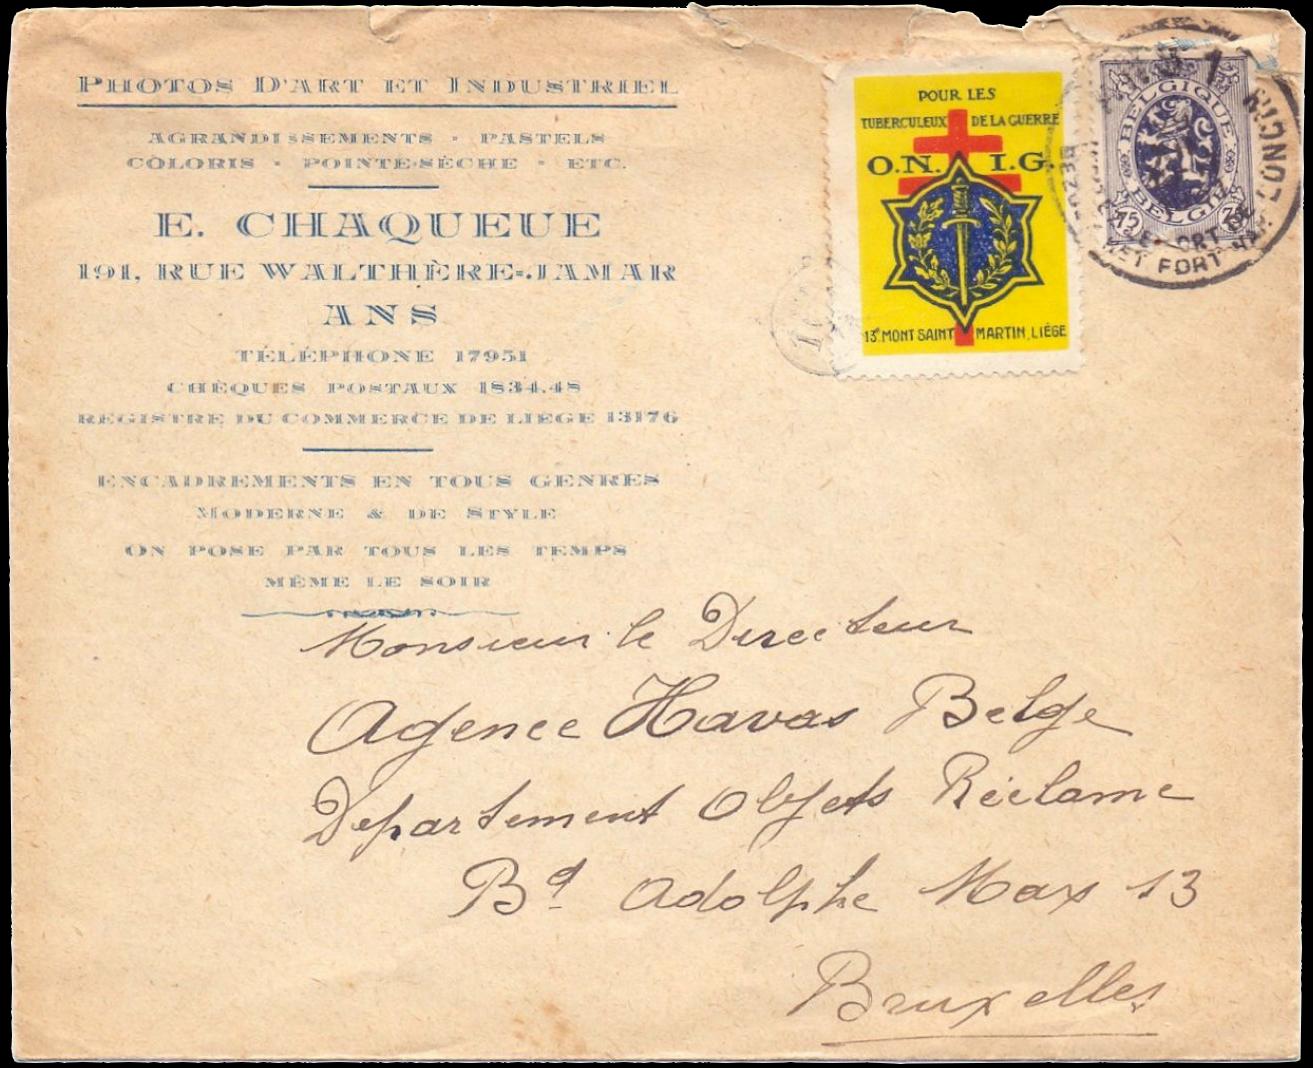 PHOTOS D'ART ET INDUSTRIEL
AGRANDISSEMENTS - PASTELS
COLORIS - POINTE-SÈCHE - ETC.
E. CHAQUEUE
191, RUE WALTHÈRE-JAMAR
ANS
TÉLÉPHONE 17951
CHÈQUES POSTAUX 1834.48
REGISTRE DU COMMERCE DE LIÉGE 13176
ENCADREMENTS EN TOUS GENRES
MODERNE & DE STYLE
ON POSE PAR TOUS LES TEMPS
MÊME LE SOIR
POUR LES
TUBERCULEUX DE LA GUERRE
O.N. I.G.
13, MONT SAINT MARTIN, LIÉGE
BELGIQUE
BELGIË
75 75
FORT
Monsieur le Directeur
Agence Havas Belge
Departement Objets Réclame
Bd Adolphe Max 13
Bruxelles